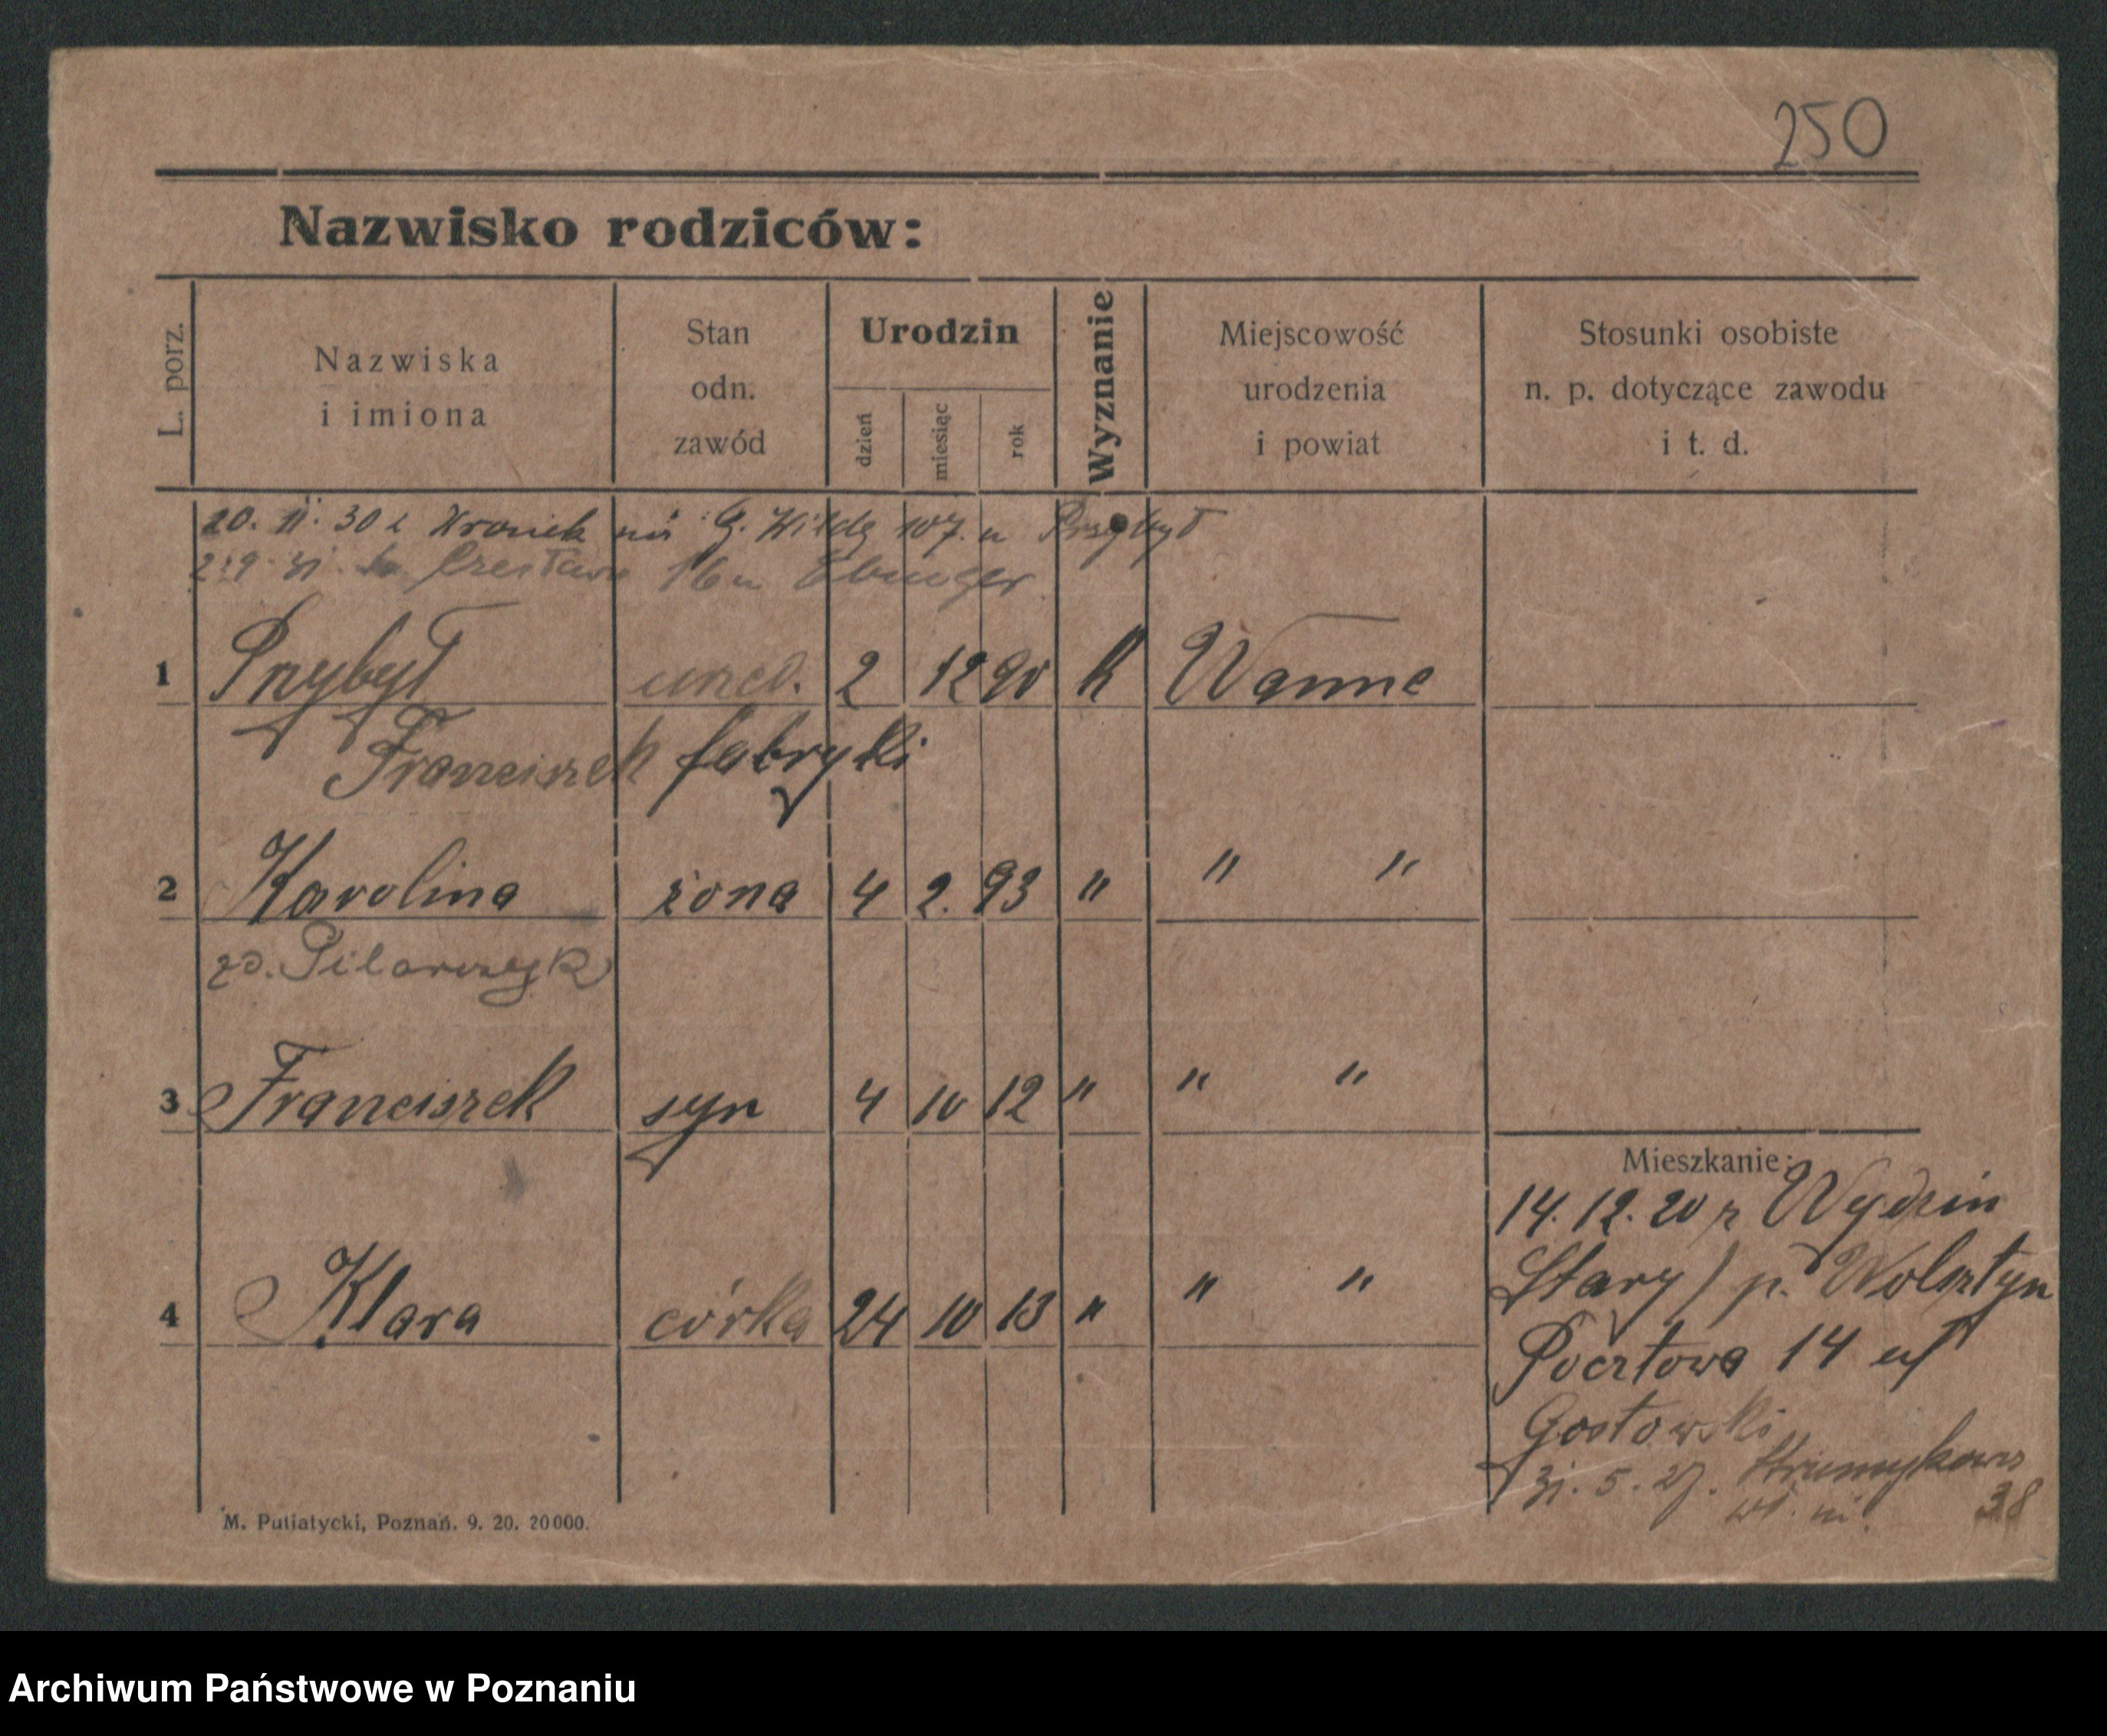 250
Nazwisko rodziców:
L. porz.
Nazwiska
i imiona
Stan
odn.
zawód
Urodzin
dzień
miesiąc
rok
Wyznanie
Miejscowość
urodzenia
i powiat
Stosunki osobiste
n. p. dotyczące zawodu
i t. d.
20. 11. 30 z Wronek na G. Wildę 107. u Przybył
Czesława 16 u
1 Przybył urzęd. 2 12 90 k Wanne
Franciszek fabryki
2 Karolina żona 4 2. 93 " " "
zd. Pilarczyk
3 Franciszek syn 4 10 12 " " "
4 Klara córka 24 10 13 " " "
Mieszkanie:
14. 12. 20 z Wydzin
Stary / p. Wolsztyn
Pocztowa 14 u/
Gostowski
31. 5. 27. Strumykowa
38
M. Putiatycki, Poznań. 9. 20. 20000.
Archiwum Państwowe w Poznaniu